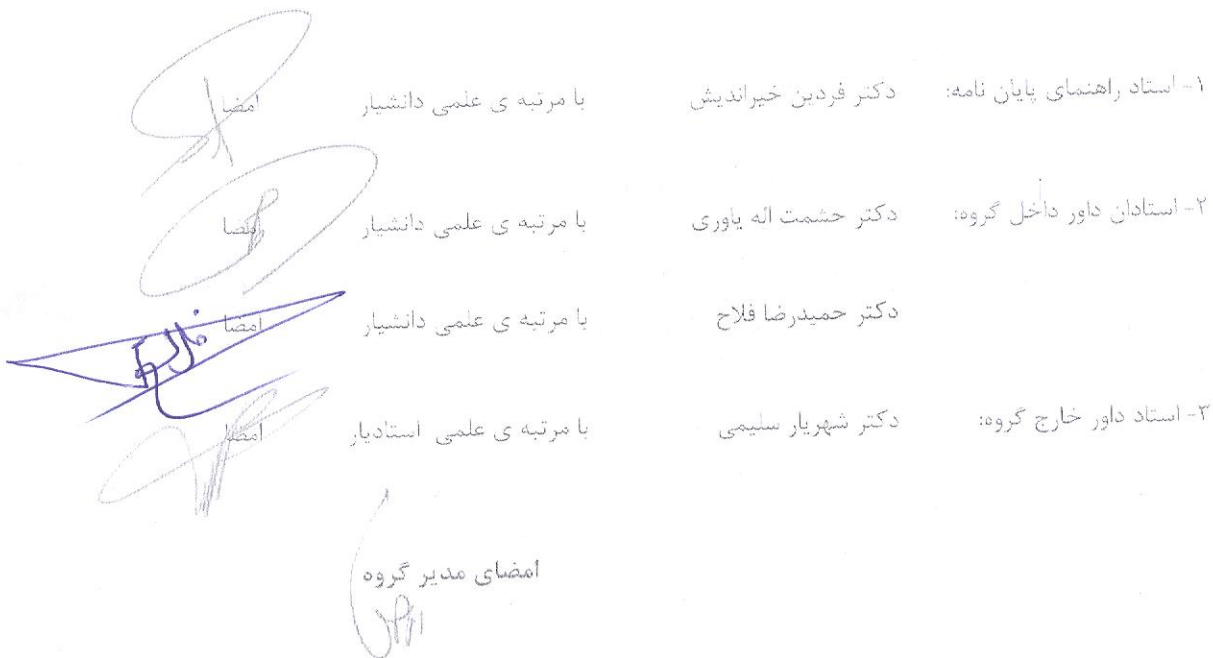 ۱- استاد راهنمای پایان نامه: دکتر فردین خیراندیش با مرتبه ی علمی دانشیار امضا
۲- استادان داور داخل گروه: دکتر حشمت اله یاوری با مرتبه ی علمی دانشیار امضا
دکتر حمیدرضا فلاح با مرتبه ی علمی دانشیار امضا
۳- استاد داور خارج گروه: دکتر شهریار سلیمی با مرتبه ی علمی استادیار امضا
امضای مدیر گروه